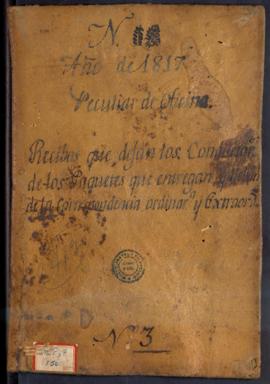 N.
Año de 1817
Peculiar de Oficina.
Recibos que dejan los Conductores
de los Paquetes que entregan
de la Correspondencia ordinar.ª y Extraord.
Nº. 3